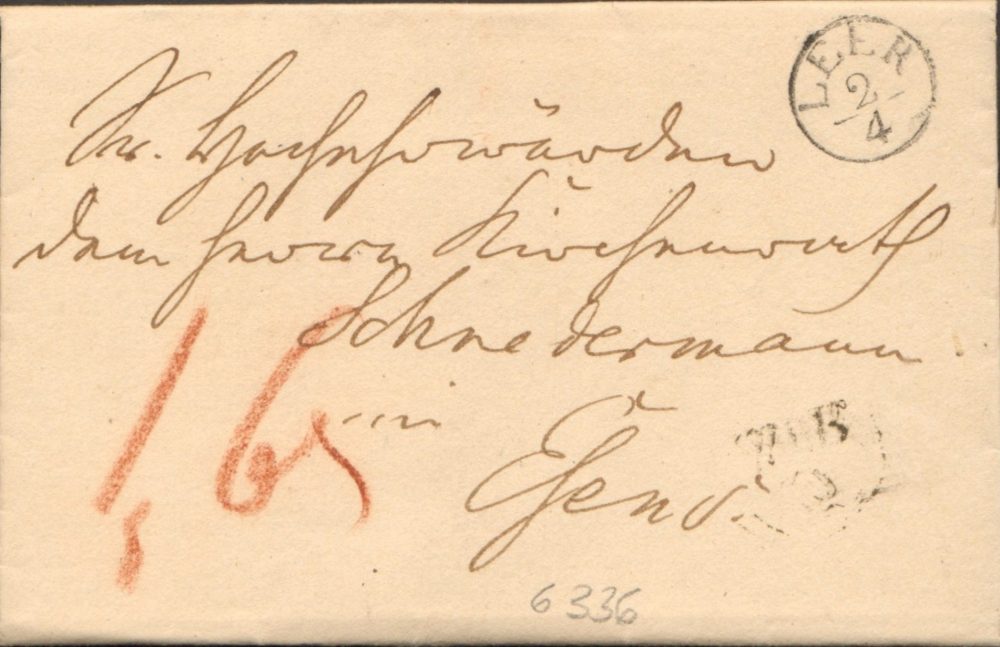 LEER
2/4
Sr. Hochehrwürden
dem Herrn Kirchenrath
Schnedermann
in
Esens.
6 336